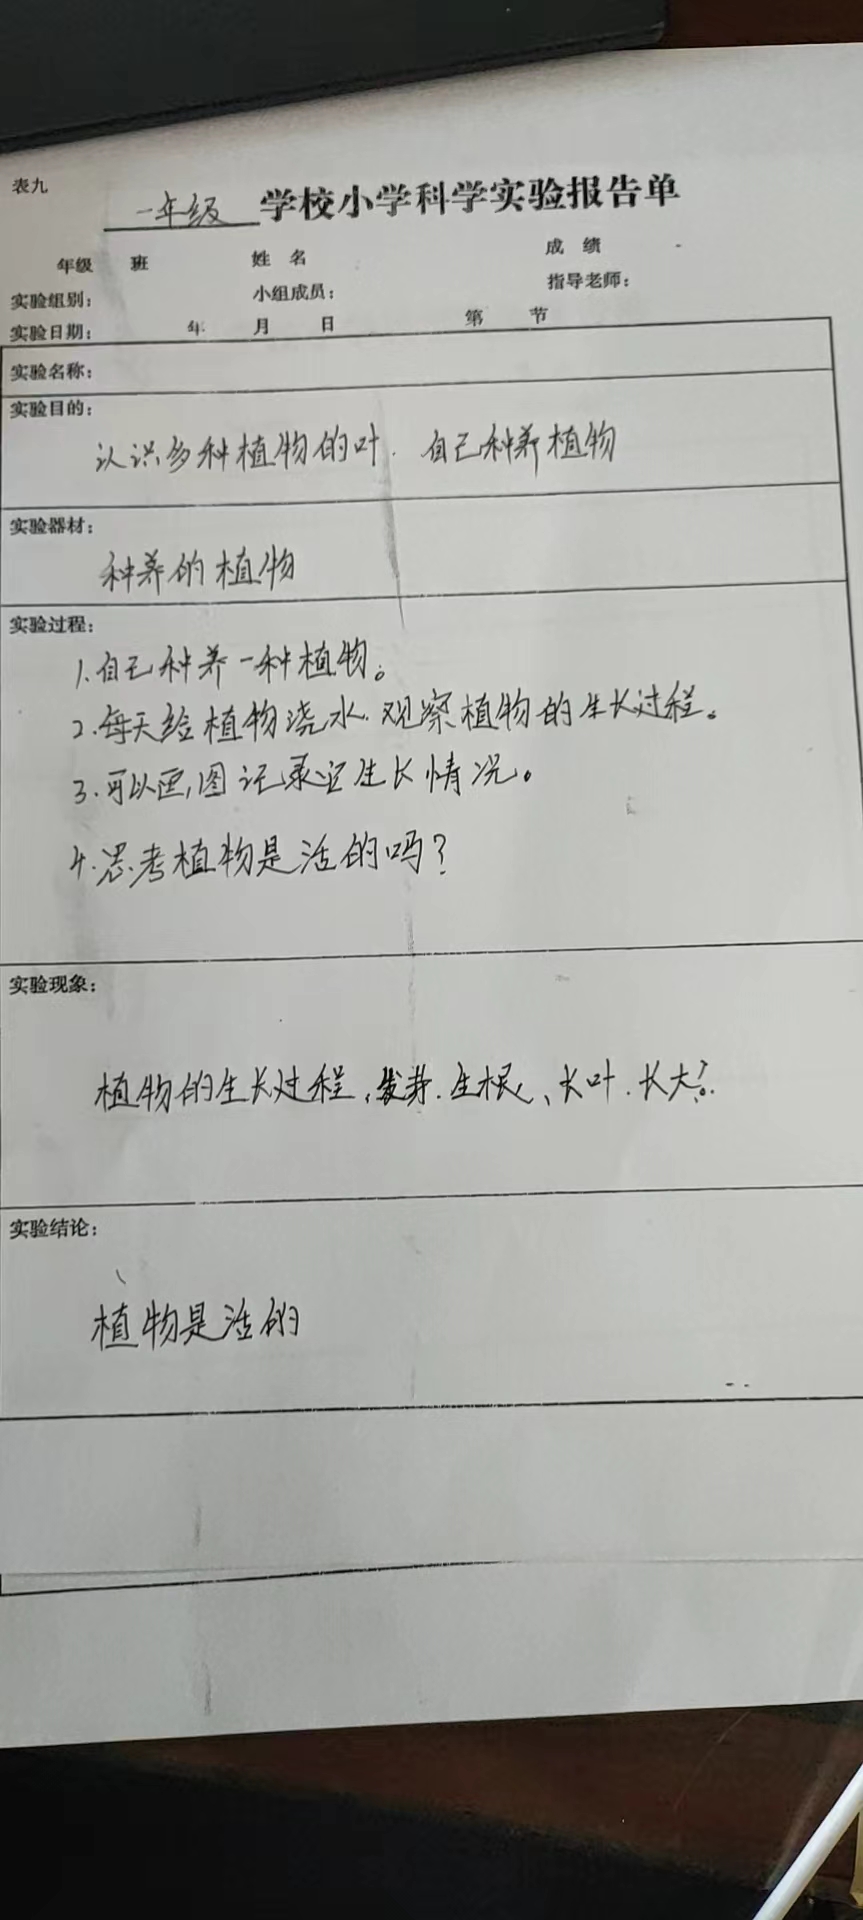 表九
一年级 学校小学科学实验报告单
年级 班 姓 名 成 绩
实验组别： 小组成员： 指导老师：
实验日期： 年 月 日 第 节
实验名称：
实验目的：
认识多种植物的叶．自己种养植物
实验器材：
种养的植物
实验过程：
1.自己种养一种植物。
2.每天给植物浇水.观察植物的生长过程。
3.可以画图记录它生长情况。
4.思考植物是活的吗？
实验现象：
植物的生长过程、发芽.生根、长叶.长大
实验结论：
植物是活的